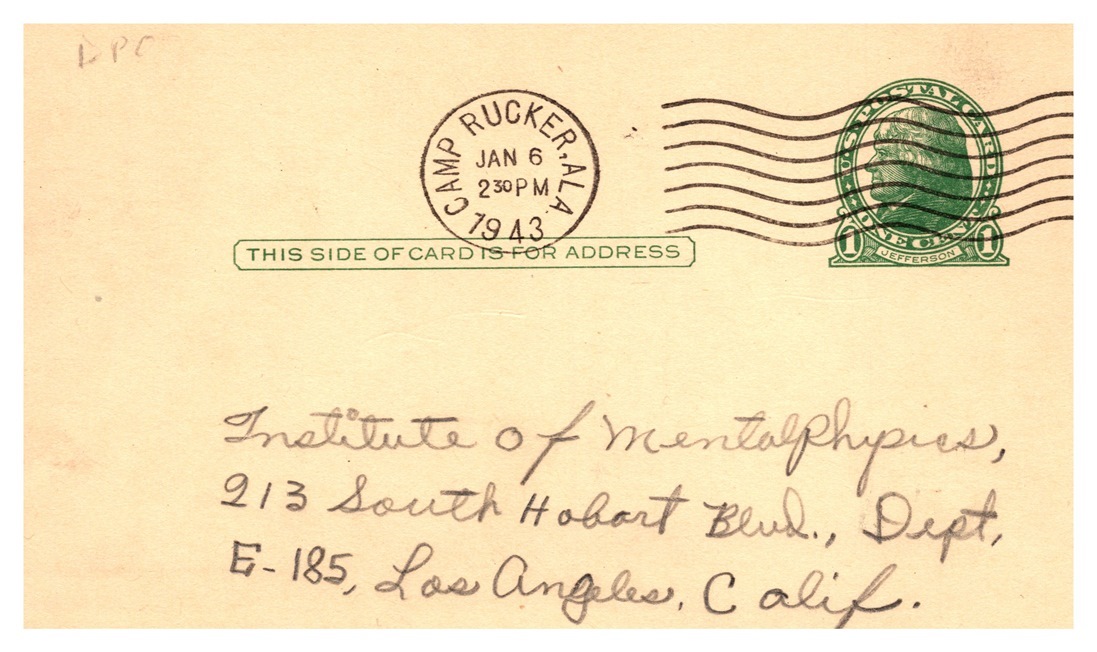 DPC
CAMP RUCKER, ALA.
JAN 6
2 30 PM
1943
U.S. POSTAL CARD
ONE CENT
1 JEFFERSON 1
THIS SIDE OF CARD IS FOR ADDRESS
Institute of Mentalphysics,
213 South Hobart Blvd., Dept,
E-185, Los Angeles, Calif.